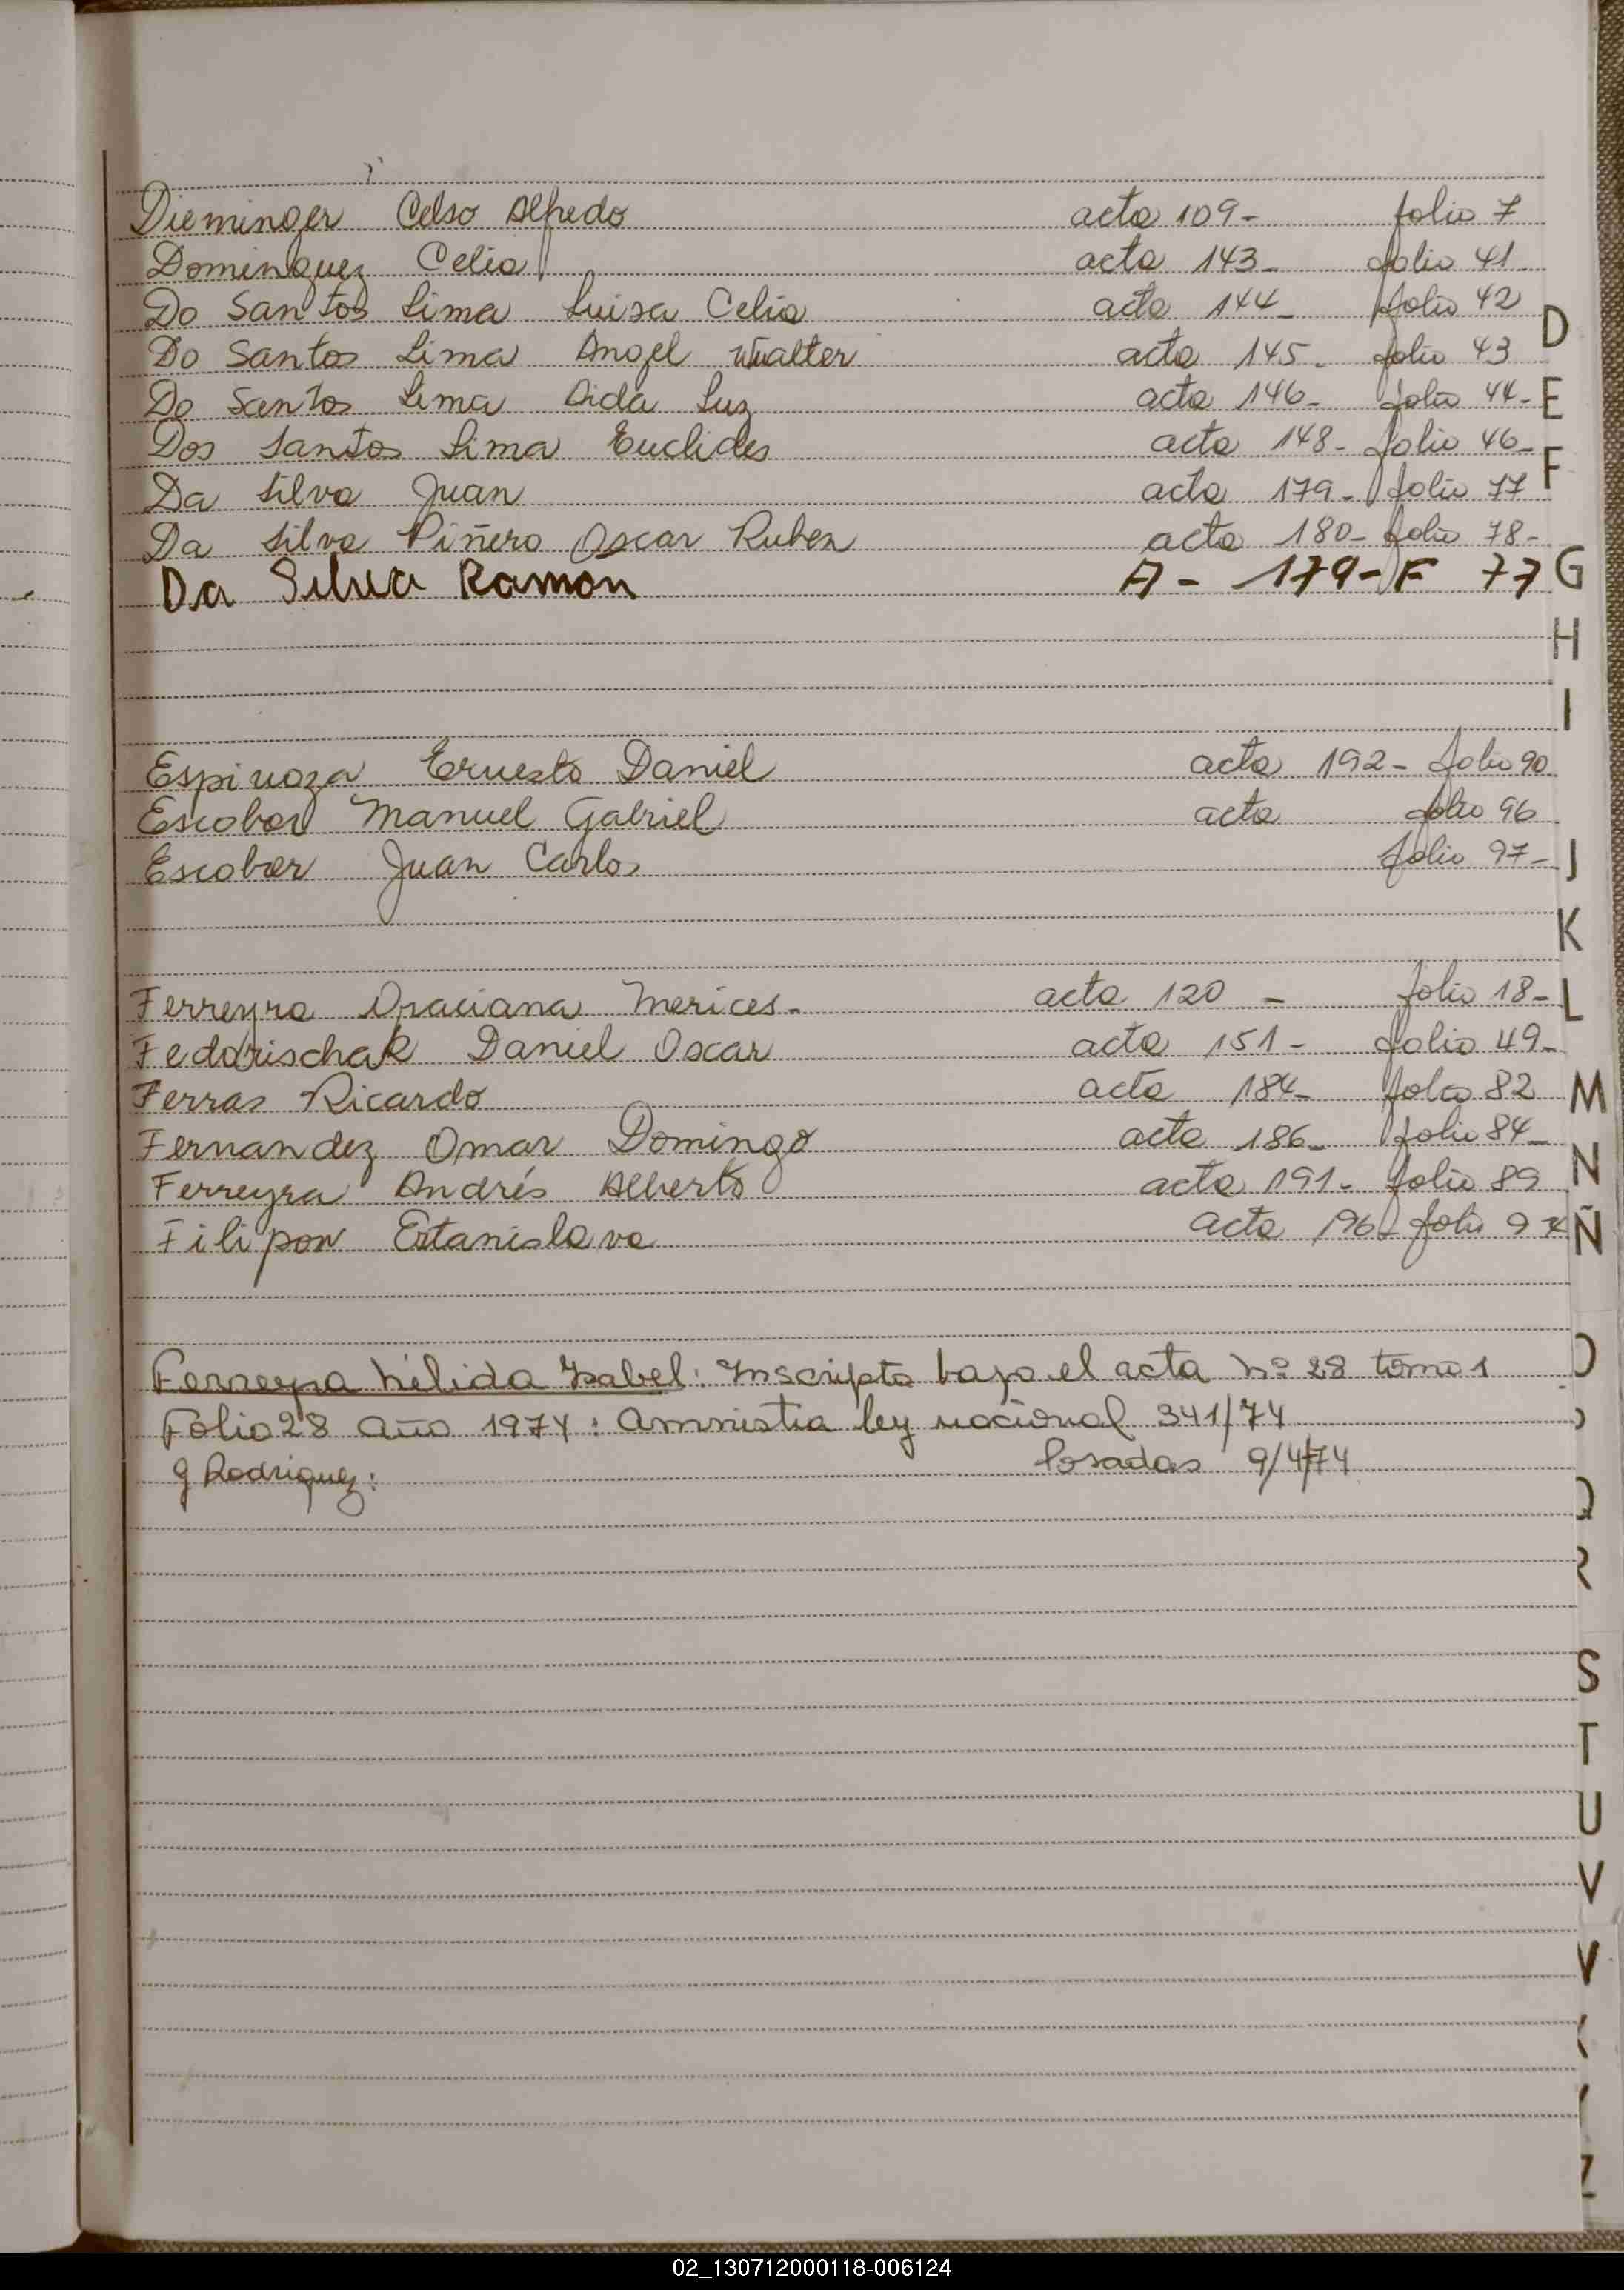 Dieminger Celso Alfredo acta 109- folio 7
Dominguez Celia acta 143- folio 41
Do Santos Lima Luisa Celia acta 144- folio 42
Do Santos Lima Angel Walter acta 145- folio 43
Do Santos Lima Aida Luz acta 146- folio 44-
Dos Santos Lima Euclides acta 148- folio 46-
Da Silva Juan acta 179- folio 77
Da Silva Piñero Oscar Ruben acta 180- folio 78-
Da Silva Ramon A- 179- F 77
Espinoza Ernesto Daniel acta 192- folio 90
Escobar Manuel Gabriel acta folio 96
Escobar Juan Carlos folio 97-
Ferreyra Graciana Merices- acta 120 - folio 18-
Fedorischak Daniel Oscar acta 151- folio 49-
Ferras Ricardo acta 184- folio 82
Fernandez Omar Domingo acta 186- folio 84-
Ferreyra Andrés Alberto acta 191- folio 89
Filipow Estanislava acta 196- folio 94
Ferreyra Nélida Ysabel: Inscripta bajo el acta Nº 28 tomo 1
Folio 28 año 1974: amnistia ley nacional 341/74
g Rodriguez: Posadas 9/4/74
D
E
F
G
H
I
J
K
L
M
N
Ñ
O
P
Q
R
S
T
U
V
Z
02_130712000118-006124